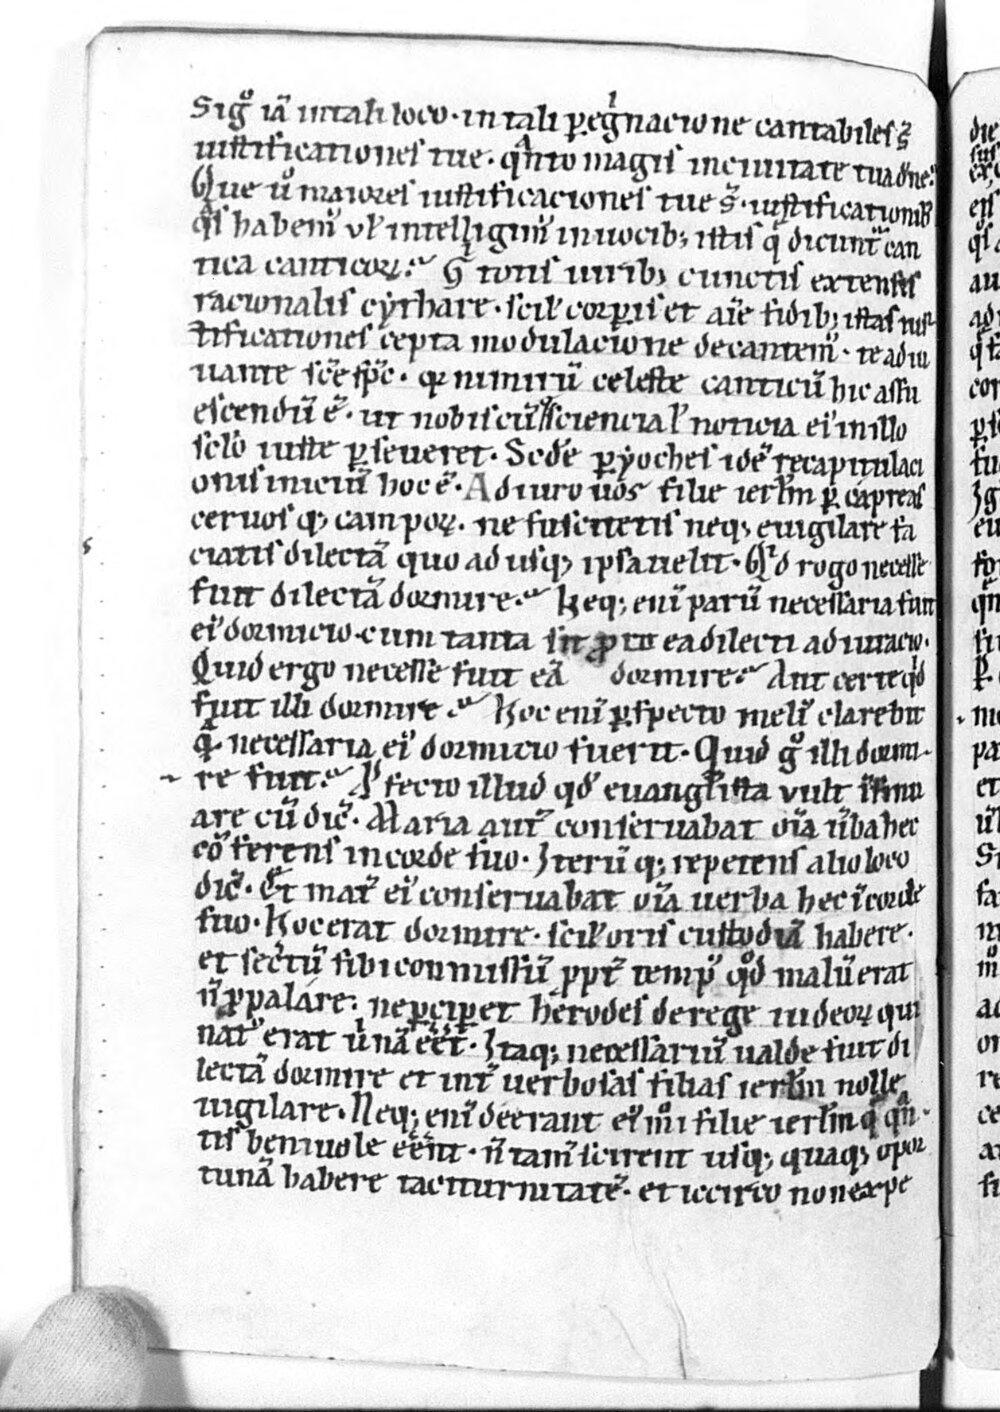 Sigͦ iā in tali loco · in tali ꝑegͥnacione cantabiles s̄
iustificationes tue · qͣnto magis in ciuitate tua dn̄e ·
Que uͦ maiores iustificaciones tue s̄ · iustificationibꝫ
qͣs habem᷒ vl̓ intelligim᷒ in uocibꝫ istis q̄ dicunt᷑ can
tica canticoꝝ · gͦ totis uiribꝫ cunctis extensis
racionalis cytharę · scil̓ corꝑis et aīe fidibꝫ istas ius
tificationes cepta modulacione decantem᷒ · te adiu
uante sc̄e sp̄c · qꝛ nimirū celeste canticū hic assu
escendū ē · ut nobiscū sciencia l̓ noticia ei᷒ in illo
sclo iuste ꝑseueret · Scd̄e ꝑyoches idē recapitulaci
onis iniciū hoc ē · Adiuro uos filie ierl̄m ꝑ capreas
ceruosqꝫ campoꝝ · ne suscitetis neqꝫ euigilare fa
ciatis dilectā quo ad usqꝫ ipsa uelit · Qͥd rogo necesse
fuit dilectā dormire · Neqꝫ enī parū necessaria fuit
ei᷒ dormicio · cum tanta sit ꝓ ea dilecti adiuracio ·
Quid ergo necesse fuit eā dormire · Aut certe qͥd
fuit illi dormire · Hoc enī ꝑspecto meli᷒ clarebit
qͣ necessaria ei᷒ dormicio fuerit · Quid gͦ illi dormi
re fuit · Ꝓfecto illud qd̓ euangl̓ista vult īsinu
are cū dic̄ · Maria aut̄ conseruabat oīa ūba hec
cōferens in corde suo · Iterūqꝫ repetens alio loco
dic̄ · Et mat̄ ei᷒ conseruabat oīa uerba hec ī corde
suo · Hoc erat dormire · scil̓ oris custodiā habere ·
et sec̄tū sibi conmissū ꝓpt̄ temp᷒ qͦd malū erat
n̄ ꝓpalare · ne ꝑciꝑet herodes de rege iudeoꝝ qui
nat᷒ erat · Itaqꝫ necessariū ualde fuit di
lectā dormire et int̄ uerbosas filias ierl̄m nolle
uigilare · Neqꝫ enī deerant ei᷒ mͦi filie ierl̄m q̄ qͣn
tis beniuole eēnt · n̄ tam̄ scirent usqꝫ quaqꝫ opor
tunā habere taciturnitatē · et iccirco non expe